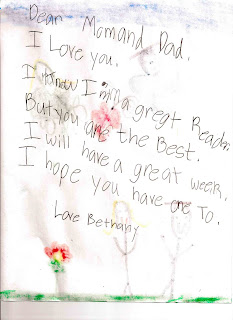 Dear Mom and Dad.
I Love you.
I know I am a great Reader.
But you are the Best.
I will have a great week.
I hope you have one To.
Love Bethany